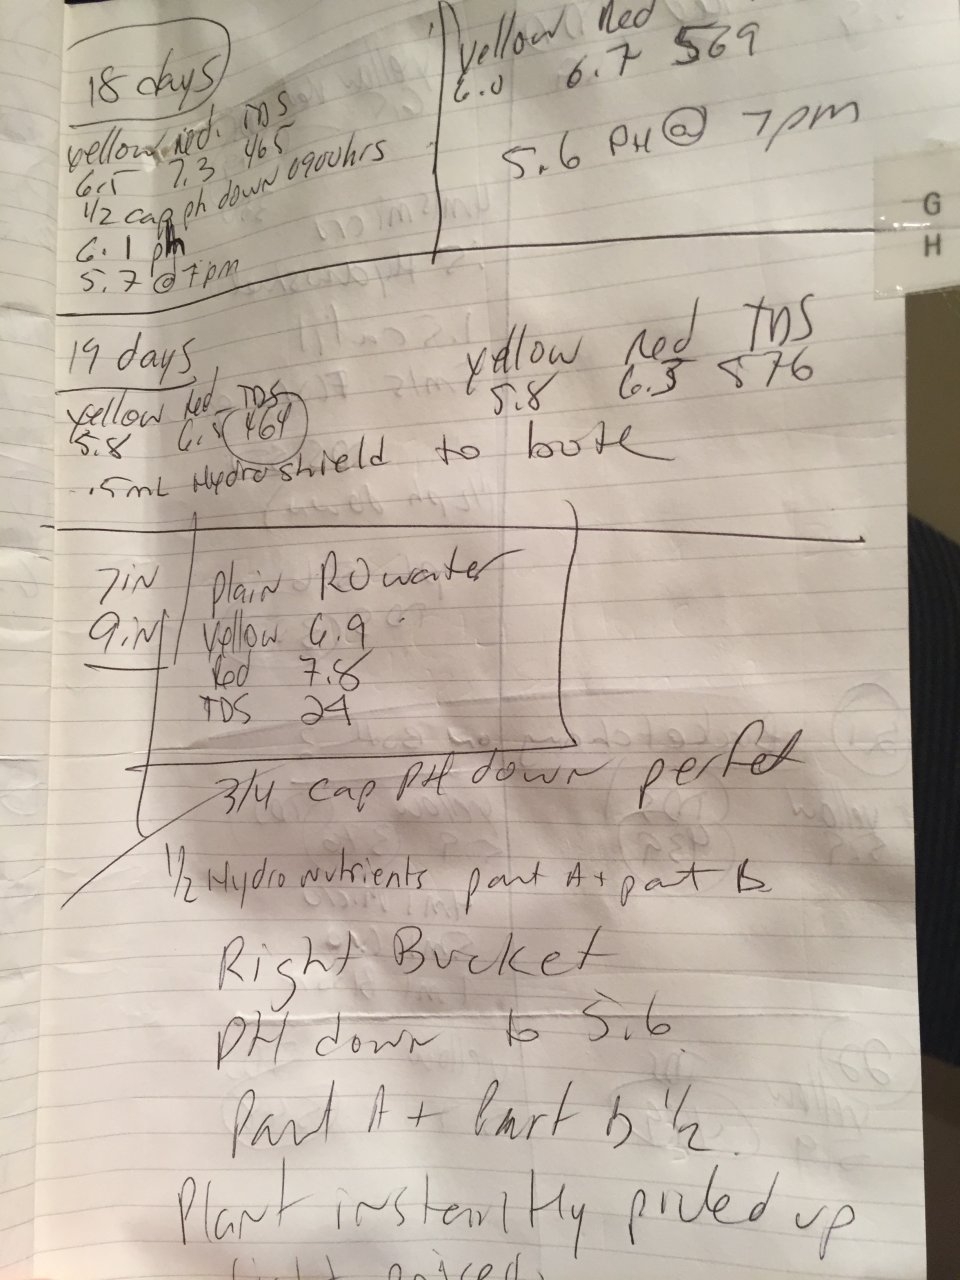 18 days
yellow Red TDS
6.5 7.3 465
1/2 cap ph down 0900hrs
6.1 pm
5.7 @ 7pm
yellow Red
6.0 6.7 569
5.6 PH @ 7pm
19 days
yellow Red TDS
5.8 6.5 464
yellow Red TDS
5.8 6.3 576
.5mL Hydroshield to bote
7in
9in
Plain RO water
Yellow 6.9
Red 7.8
TDS 24
3/4 cap PH down perfet
1/2 Hydro nutrients part A + part B
Right Bucket
PH down to 5.6
Part A + Part B 1/2
Plant instantly up
G
H